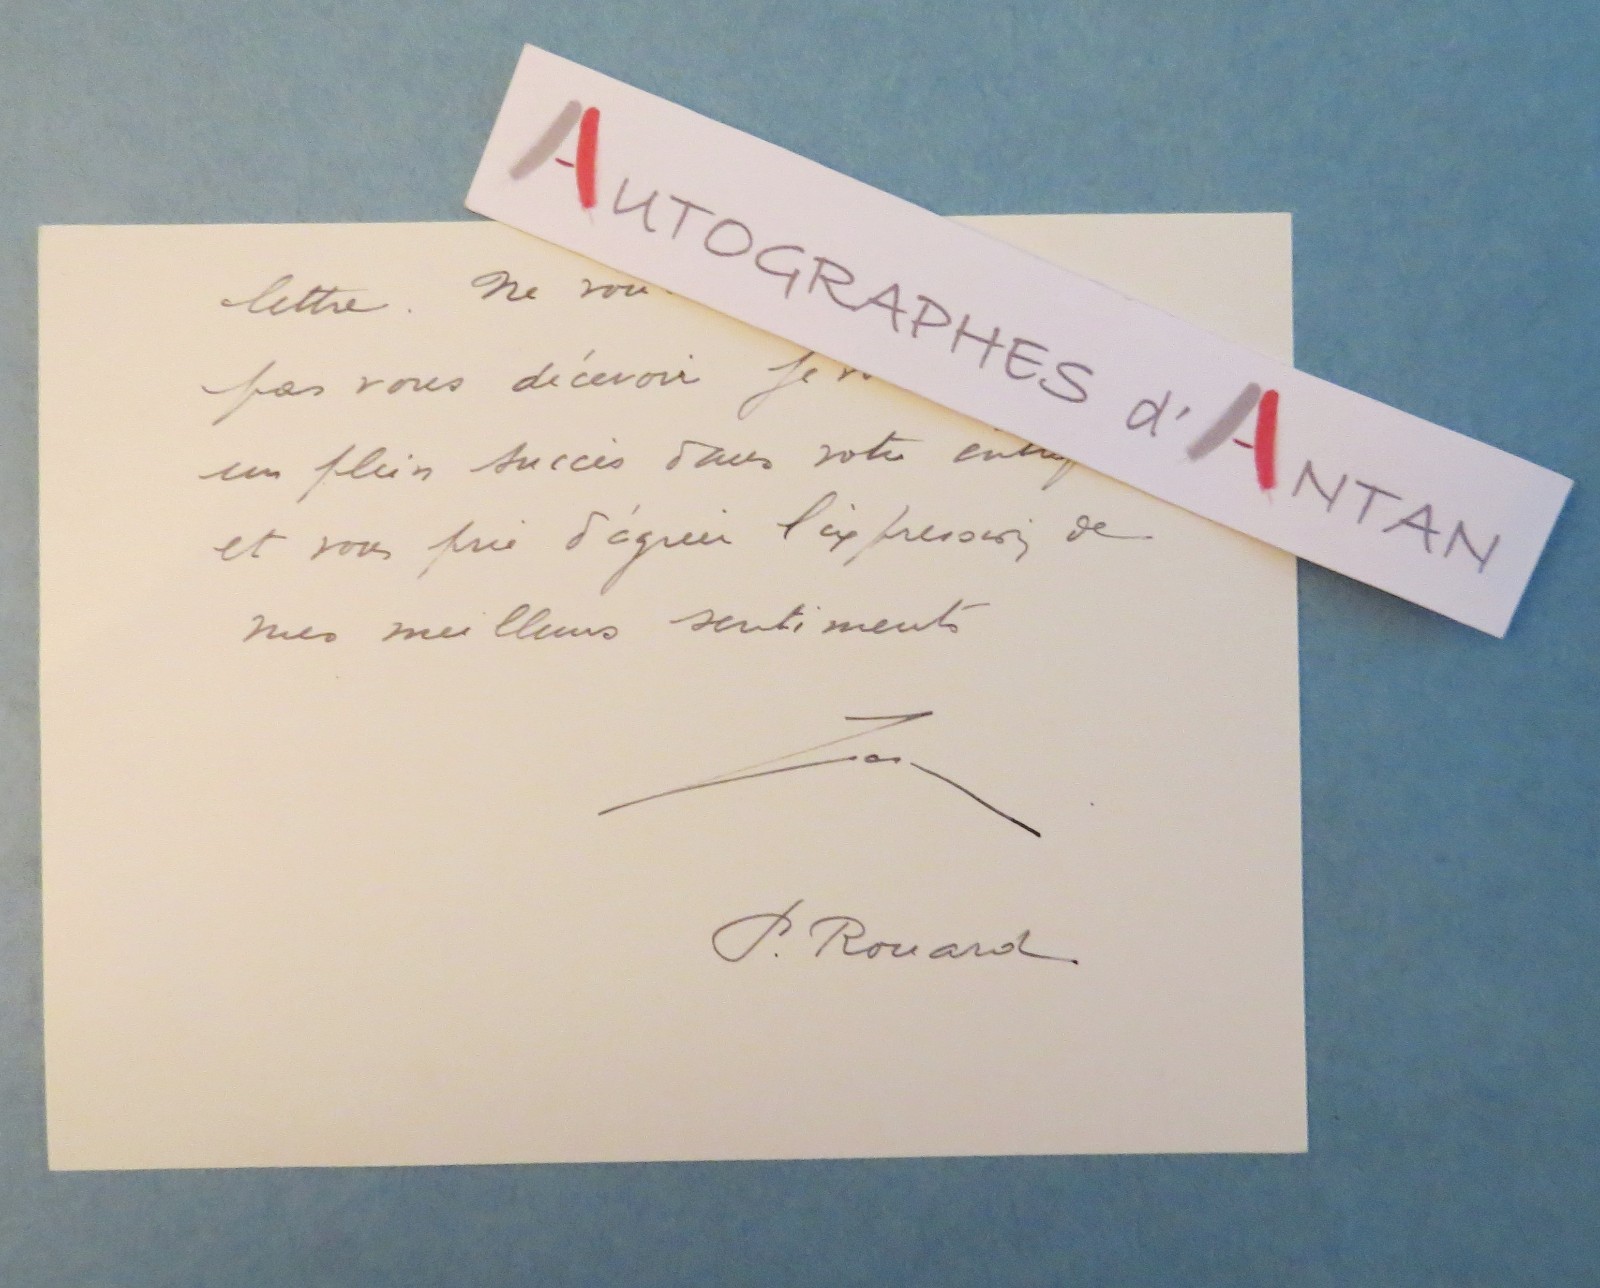 AUTOGRAPHES d'ANTAN
lettre. Ne
pas vous décevoir Je
un plein succès dans votre
et vous prie d'agréer l'expression de
mes meilleurs sentiments
P. Rouard